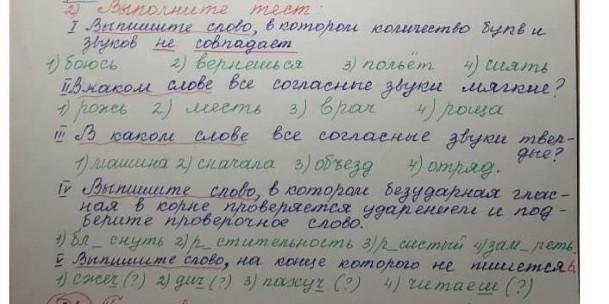 2) Выполните тест:
I Выпишите слово, в котором количество букв и
звуков не совпадает
1) боюсь 2) вернёшься 3) польёт 4) сиять
II В каком слове все согласные звуки мягкие?
1) рожь 2) месть 3) врач 4) роща
III В каком слове все согласные звуки твер-
дые?
1) машина 2) сначала 3) объезд 4) отряд.
IV Выпишите слово, в котором безударная глас-
ная в корне проверяется ударением и под-
берите проверочное слово.
1) бл_снуть 2) р_стительность 3) р_систый 4) зам_реть.
V Выпишите слово, на конце которого не пишется ь.
1) сжеч(?) 2) дич(?) 3) пахуч(?) 4) читаеш(?)